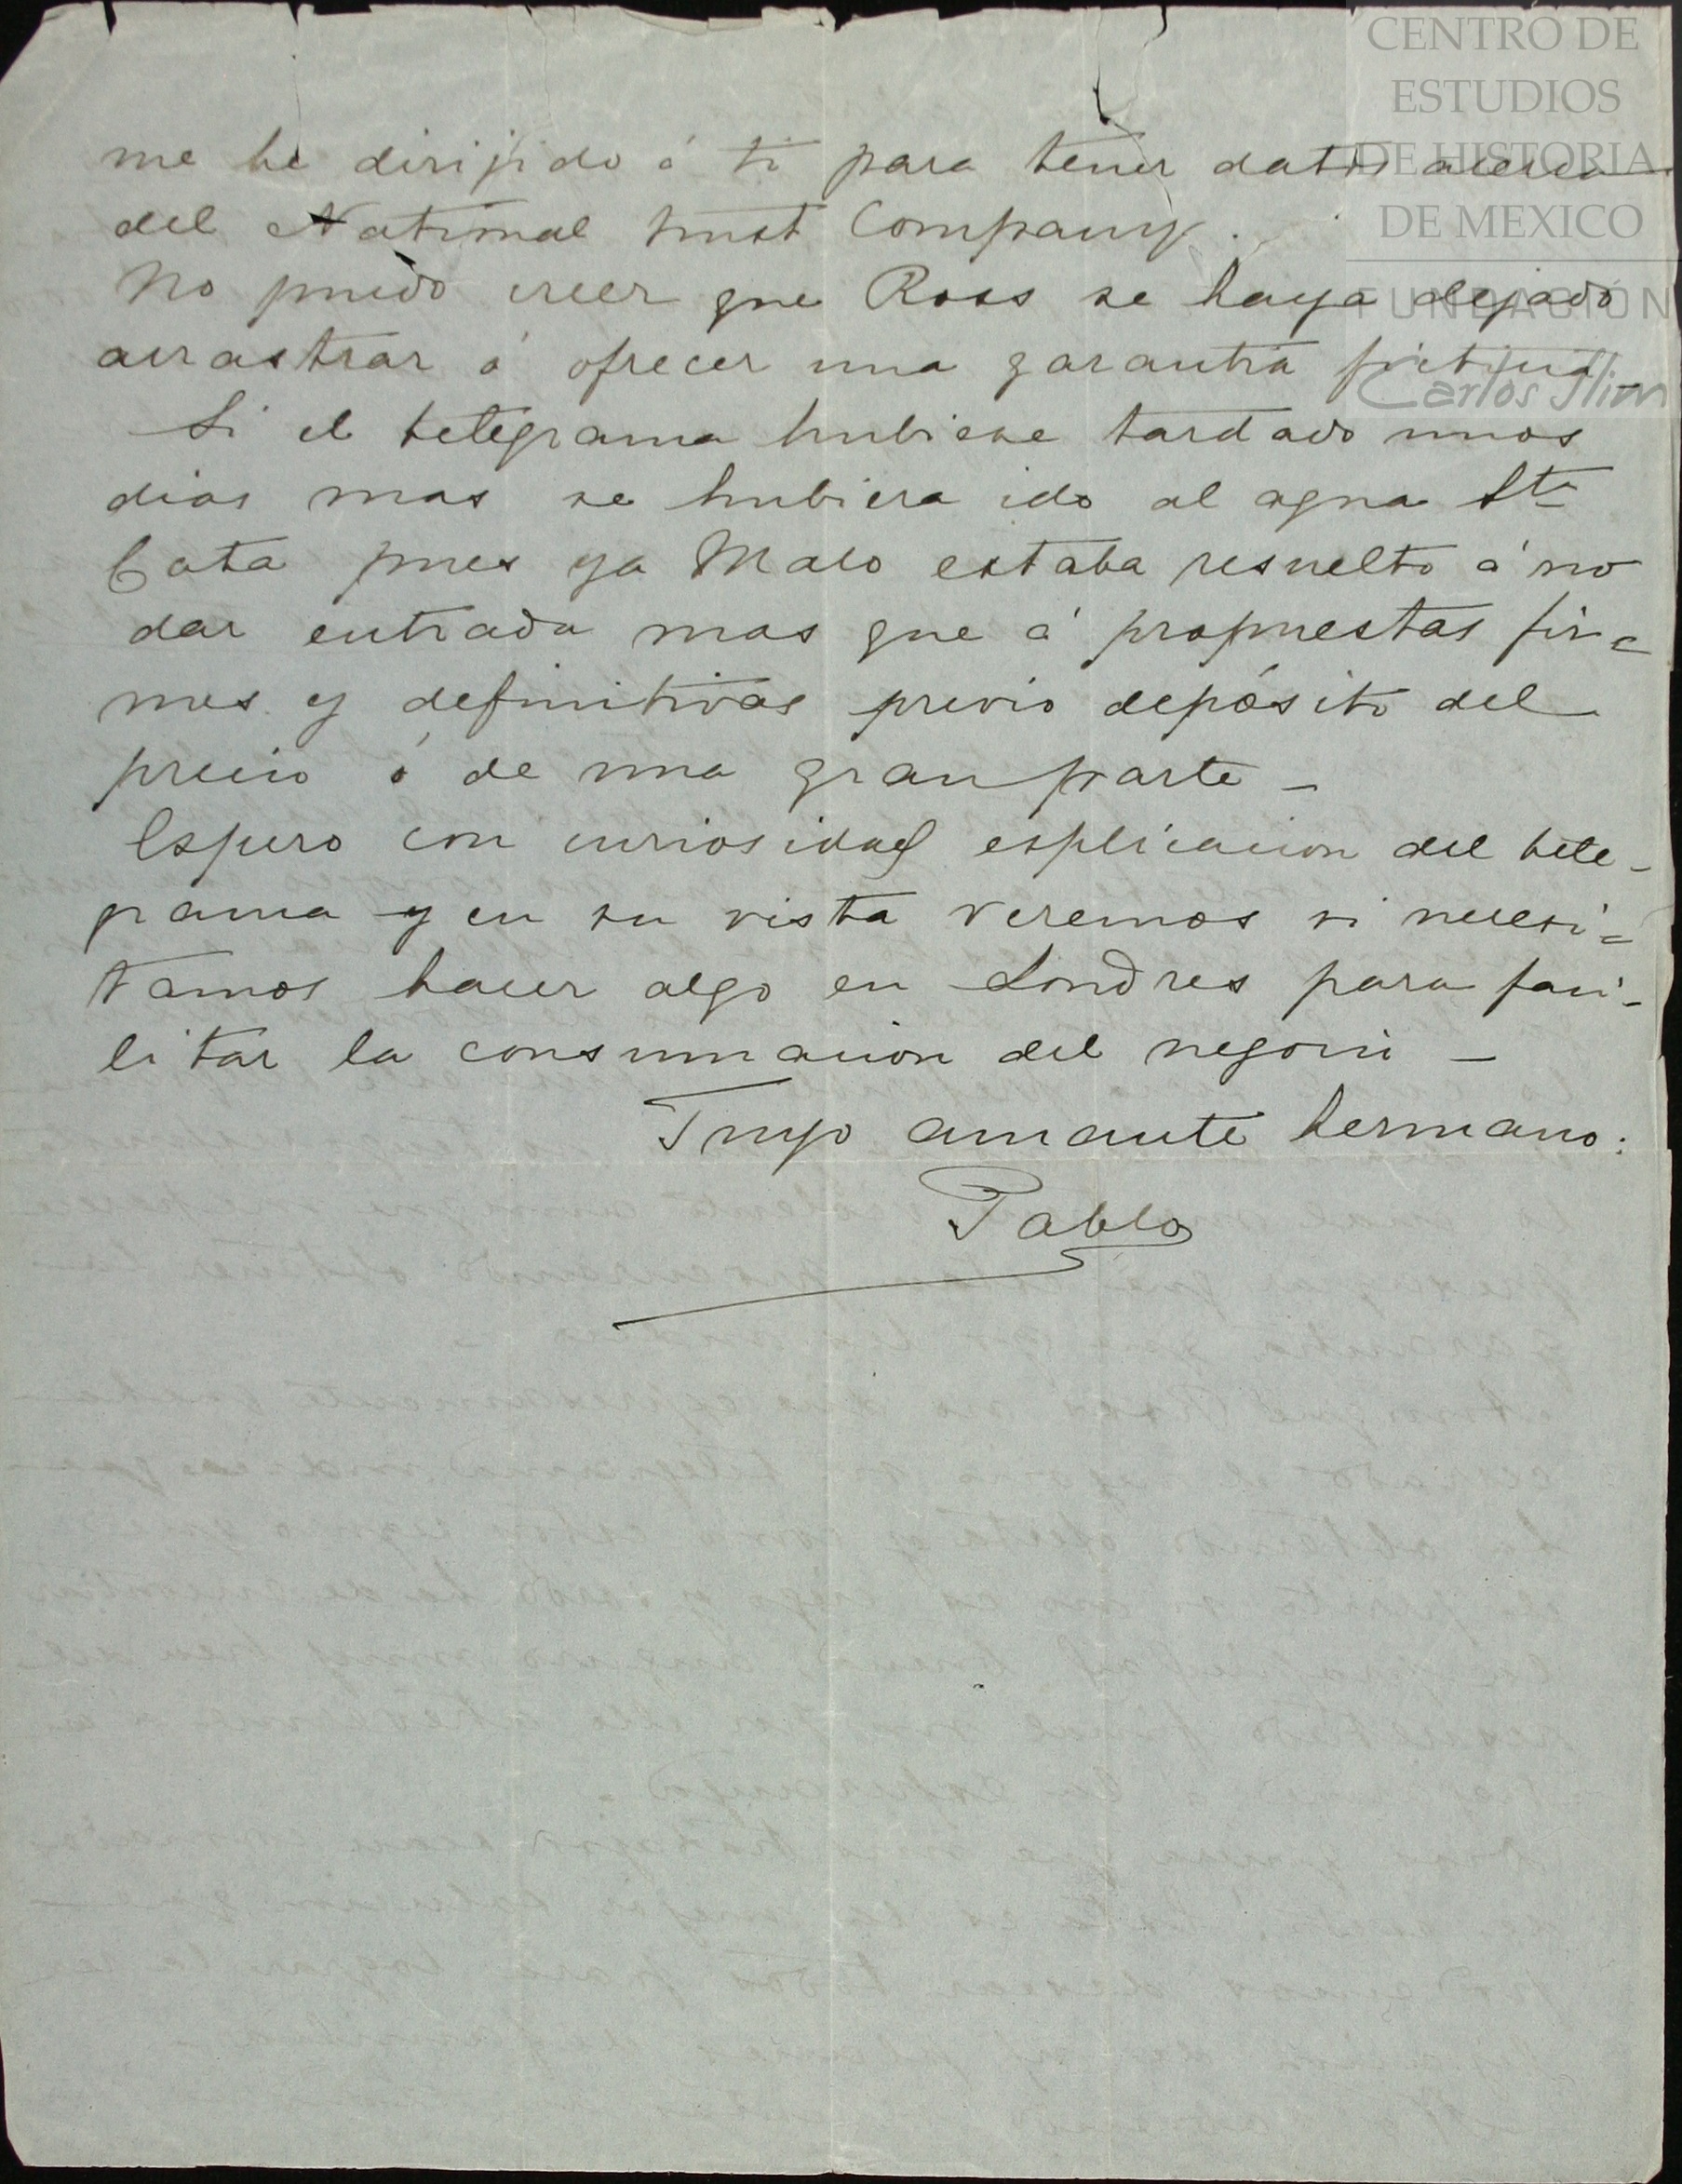 CENTRO DE
ESTUDIOS
DE HISTORIA
DE MEXICO
FUNDACIÓN
Carlos Slim
me he dirijido á ti para tener datos acerca
del National trust Company.
No puedo creer que Ross se haya dejado
arrastrar á ofrecer una garantia ficticia
Si el telegrama hubiese tardado unos
dias mas se hubiera ido al agua Sta
Cata pues ya Malo estaba resuelto á no
dar entrada mas que á propuestas fir=
mes y definitivas previo depósito del
precio ó de una gran parte –
Espero con curiosidad esplicacion del tele-
grama y en su vista veremos si necesi=
tamos hacer algo en Londres para faci-
litar la consumacion del negocio –
Tuyo amante hermano:
Pablo